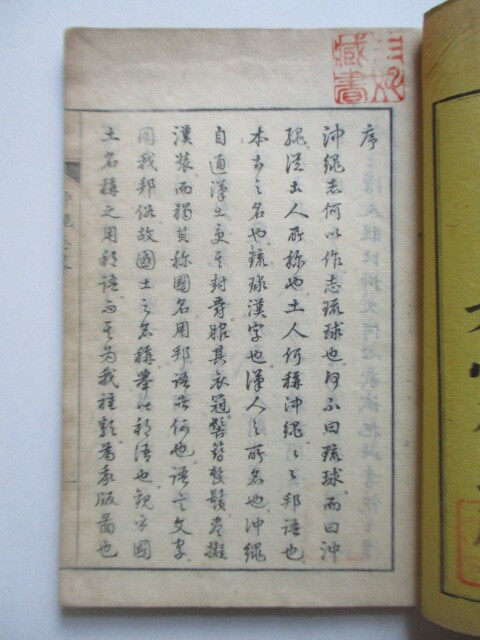 序
沖繩志何以作志琉球也何不曰琉球而曰沖
繩從土人所称也土人何稱沖繩〻〻邦語也
本古之名也琉球漢字也漢人之所名也沖繩
自通漢土受其封爵服其衣冠簪鬚鬢盡擬
漢裝而獨其称國名用邦語者何也語言文字
同我邦俗故國土之名稱舉皆邦語也觀乎國
土名稱之用邦語而其为我種類為我版圖也
藏書